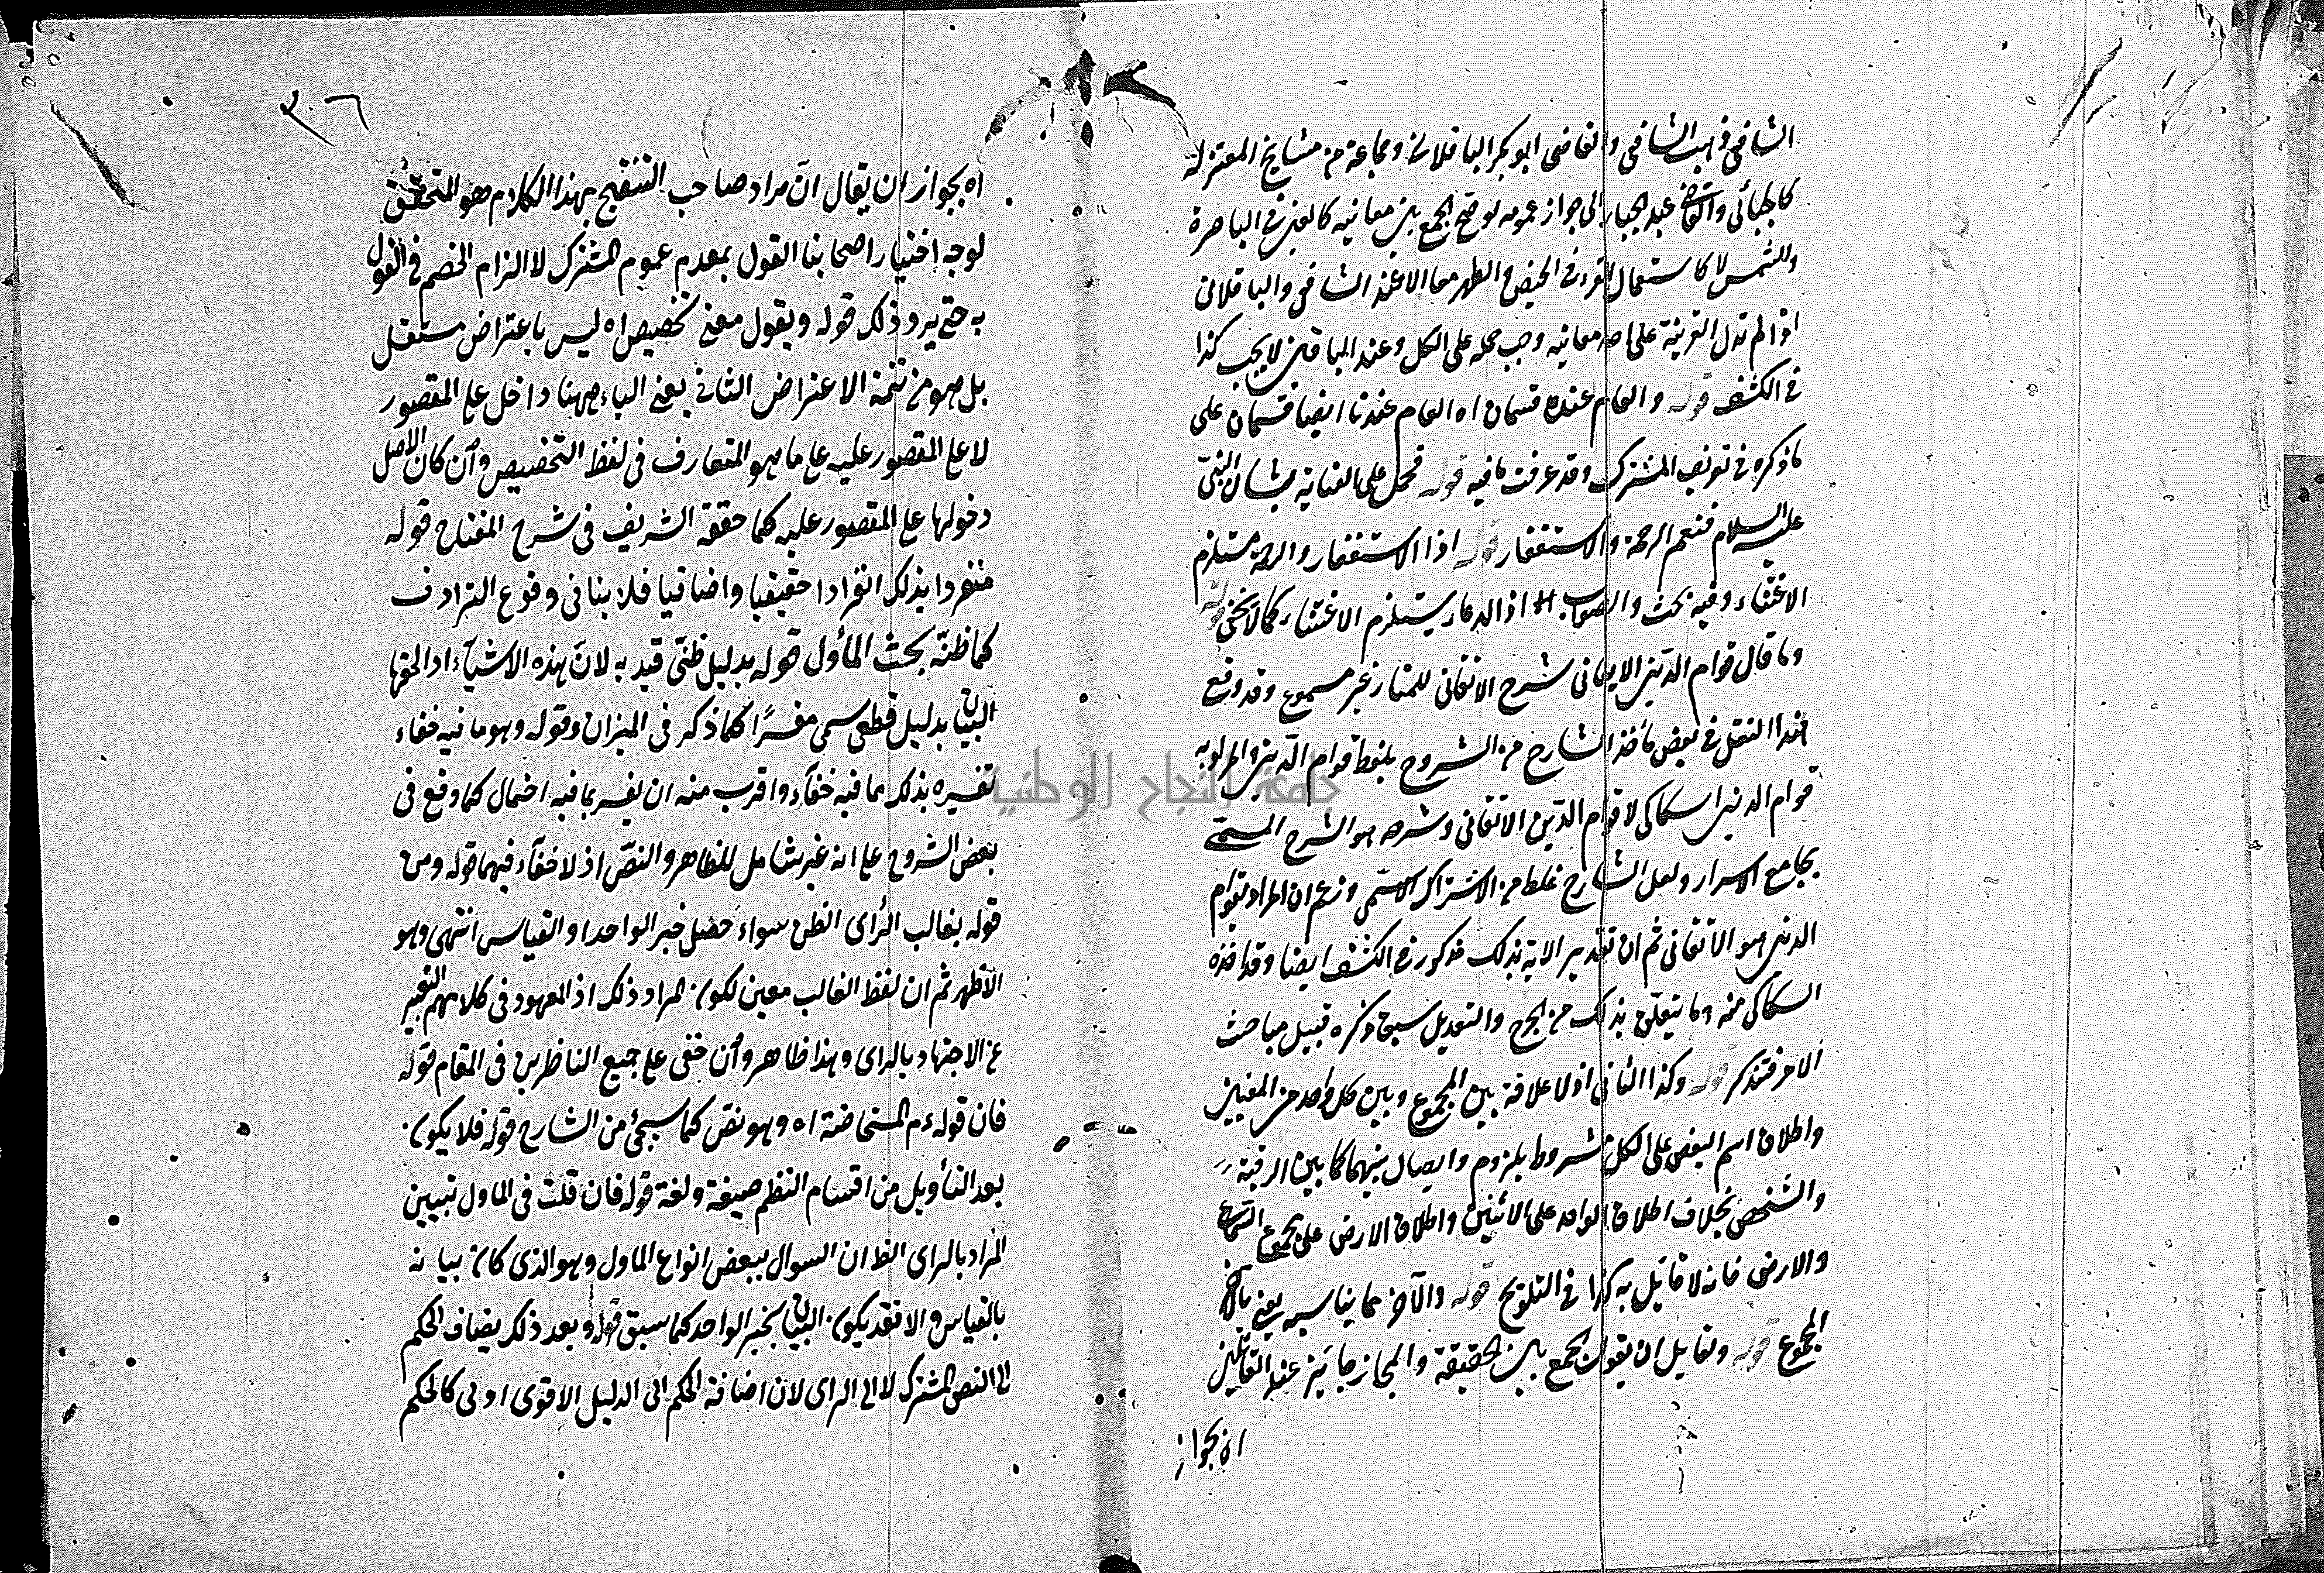 الشافعي فذهب الشافعي والقاضي ابو بكر الباقلاني وجماعة من مشايخ المعتزلة
كالجبائي والقاضي عبد الجبار الى جواز عمومه لو صح الجمع بين معانيه كالعين في الباصرة
والشمس لا كاستعمال القرء في الحيض والطهر معا الا عند الشافعي والباقلاني
اذا لم تدل القرينة على احد معانيه وجب حمله على الكل وعند الباقين لا يجب كذا
في الكشف قوله والعام عنده قسمان اه العام عندنا ايضا قسمان على
ما ذكره في تعريف المشترك وقد عرفت ما فيه قوله فحمل على العناية بشان النبي
عليه السلام فتعم الرحمة والاستغفار قوله اذا الاستغفار والرحمة مستلزم
الاعتناء وفيه بحث والصواب اذ الدعاء يستلزم الاعتناء كما لا يخفى قوله
وما قال قوام الدين الاتقاني شرح الاتقاني للمنار غير مسموع وقد وقع
هذا النقل في بعض ماخذ الشارح من الشروح بلفظ قوام الدين والمراد به
قوام الدين السكاكي لا قوام الدين الاتقاني وشرحه هو الشرح المسمى
بجامع الاسرار ولعل الشارح غلط من الاشتراك الاسمي وزعم ان المراد بقوام
الدين هو الاتقاني ثم ان تقدير الاية بذلك مذكور في الكشف ايضا وقد اخذه
السكاكي منه وما يتعلق بذلك من الجرح والتعديل سبق ذكره قبيل مباحث
الامر فتذكر قوله وكذا الثاني اذ لا علاقة بين المجموع وبين كل واحد من المعنيين
واطلاق اسم البعض على الكل مشروط بلزوم واتصال بينهما كما بين الرقبة
والشخص بخلاف اطلاق الواحد على الاثنين واطلاق الارض على مجموع السماء
والارض فانه لا قايل به كذا في التلويح قوله والآخر مما يناسبه يعني بالآخر
المجموع قوله ولقايل ان يقول الجمع بين الحقيقة والمجاز جايز عند القائلين
اه بجواز
٣٠٦
اه بجواز ان يقال ان مراد صاحب التنقيح بهذا الكلام هو التحقيق
لوجه اختيار اصحابنا القول بعدم عموم المشترك لا الزام الخصم في القول
به حتى يرد ذلك قوله ويقول معنى تخصيص اه ليس باعتراض مستقل
بل هو من تتمة الاعتراض الثاني يعني الباء ههنا داخل على المقصور
لا على المقصور عليه على ما هو المتعارف في لفظ التخصيص وان كان الاصل
دخولها على المقصور عليه كما حققه الشريف في شرح المفتاح قوله
منفردا بذلك انفرادا حقيقيا واضافيا فلا ينافي وقوع الترادف
كما ظنه بحث المأول قوله بدليل ظني قيد به لان هذه الاشياء اذا لحقها
البيان بدليل قطعي سمي مفسرًا كما ذكر في الميزان وقوله وهو ما فيه خفاء
تفسيره بذلك مما فيه خفاء واقرب منه ان يفسر بما فيه احتمال كما وقع في
بعض الشروح على انه غير شامل للظاهر والنص اذ لا خفاء فيهما قوله ومن
قوله بغالب الرأى الظن سواء حصل خبر الواحد او القياس انتهى وهو
الأظهر ثم ان لفظ الغالب معين لكون المراد ذلك اذ المعهود في كلامهم التعبير
عن الاجتهاد بالراى وهذا ظاهر وان خفي على جميع الناظرين في المقام قوله
فان قوله عم المستحاضة اه وهو نص كما سيجئ من الشارح قوله فلا يكون
بعد التأويل من اقسام النظم صيغة ولغة قوله فان قلت في الماول تبيين
المراد بالراى الظ ان السوال ببعض انواع الماول وهو الذى كان بيانه
بالقياس والا فقد يكون البيان بخبر الواحد كما سبق قوله وبعد ذلك يضاف الحكم
الى النص المشترك لا الى الراى لان اضافة الحكم الى الدليل الاقوى اولى كالحكم
جامعة النجاح الوطنية